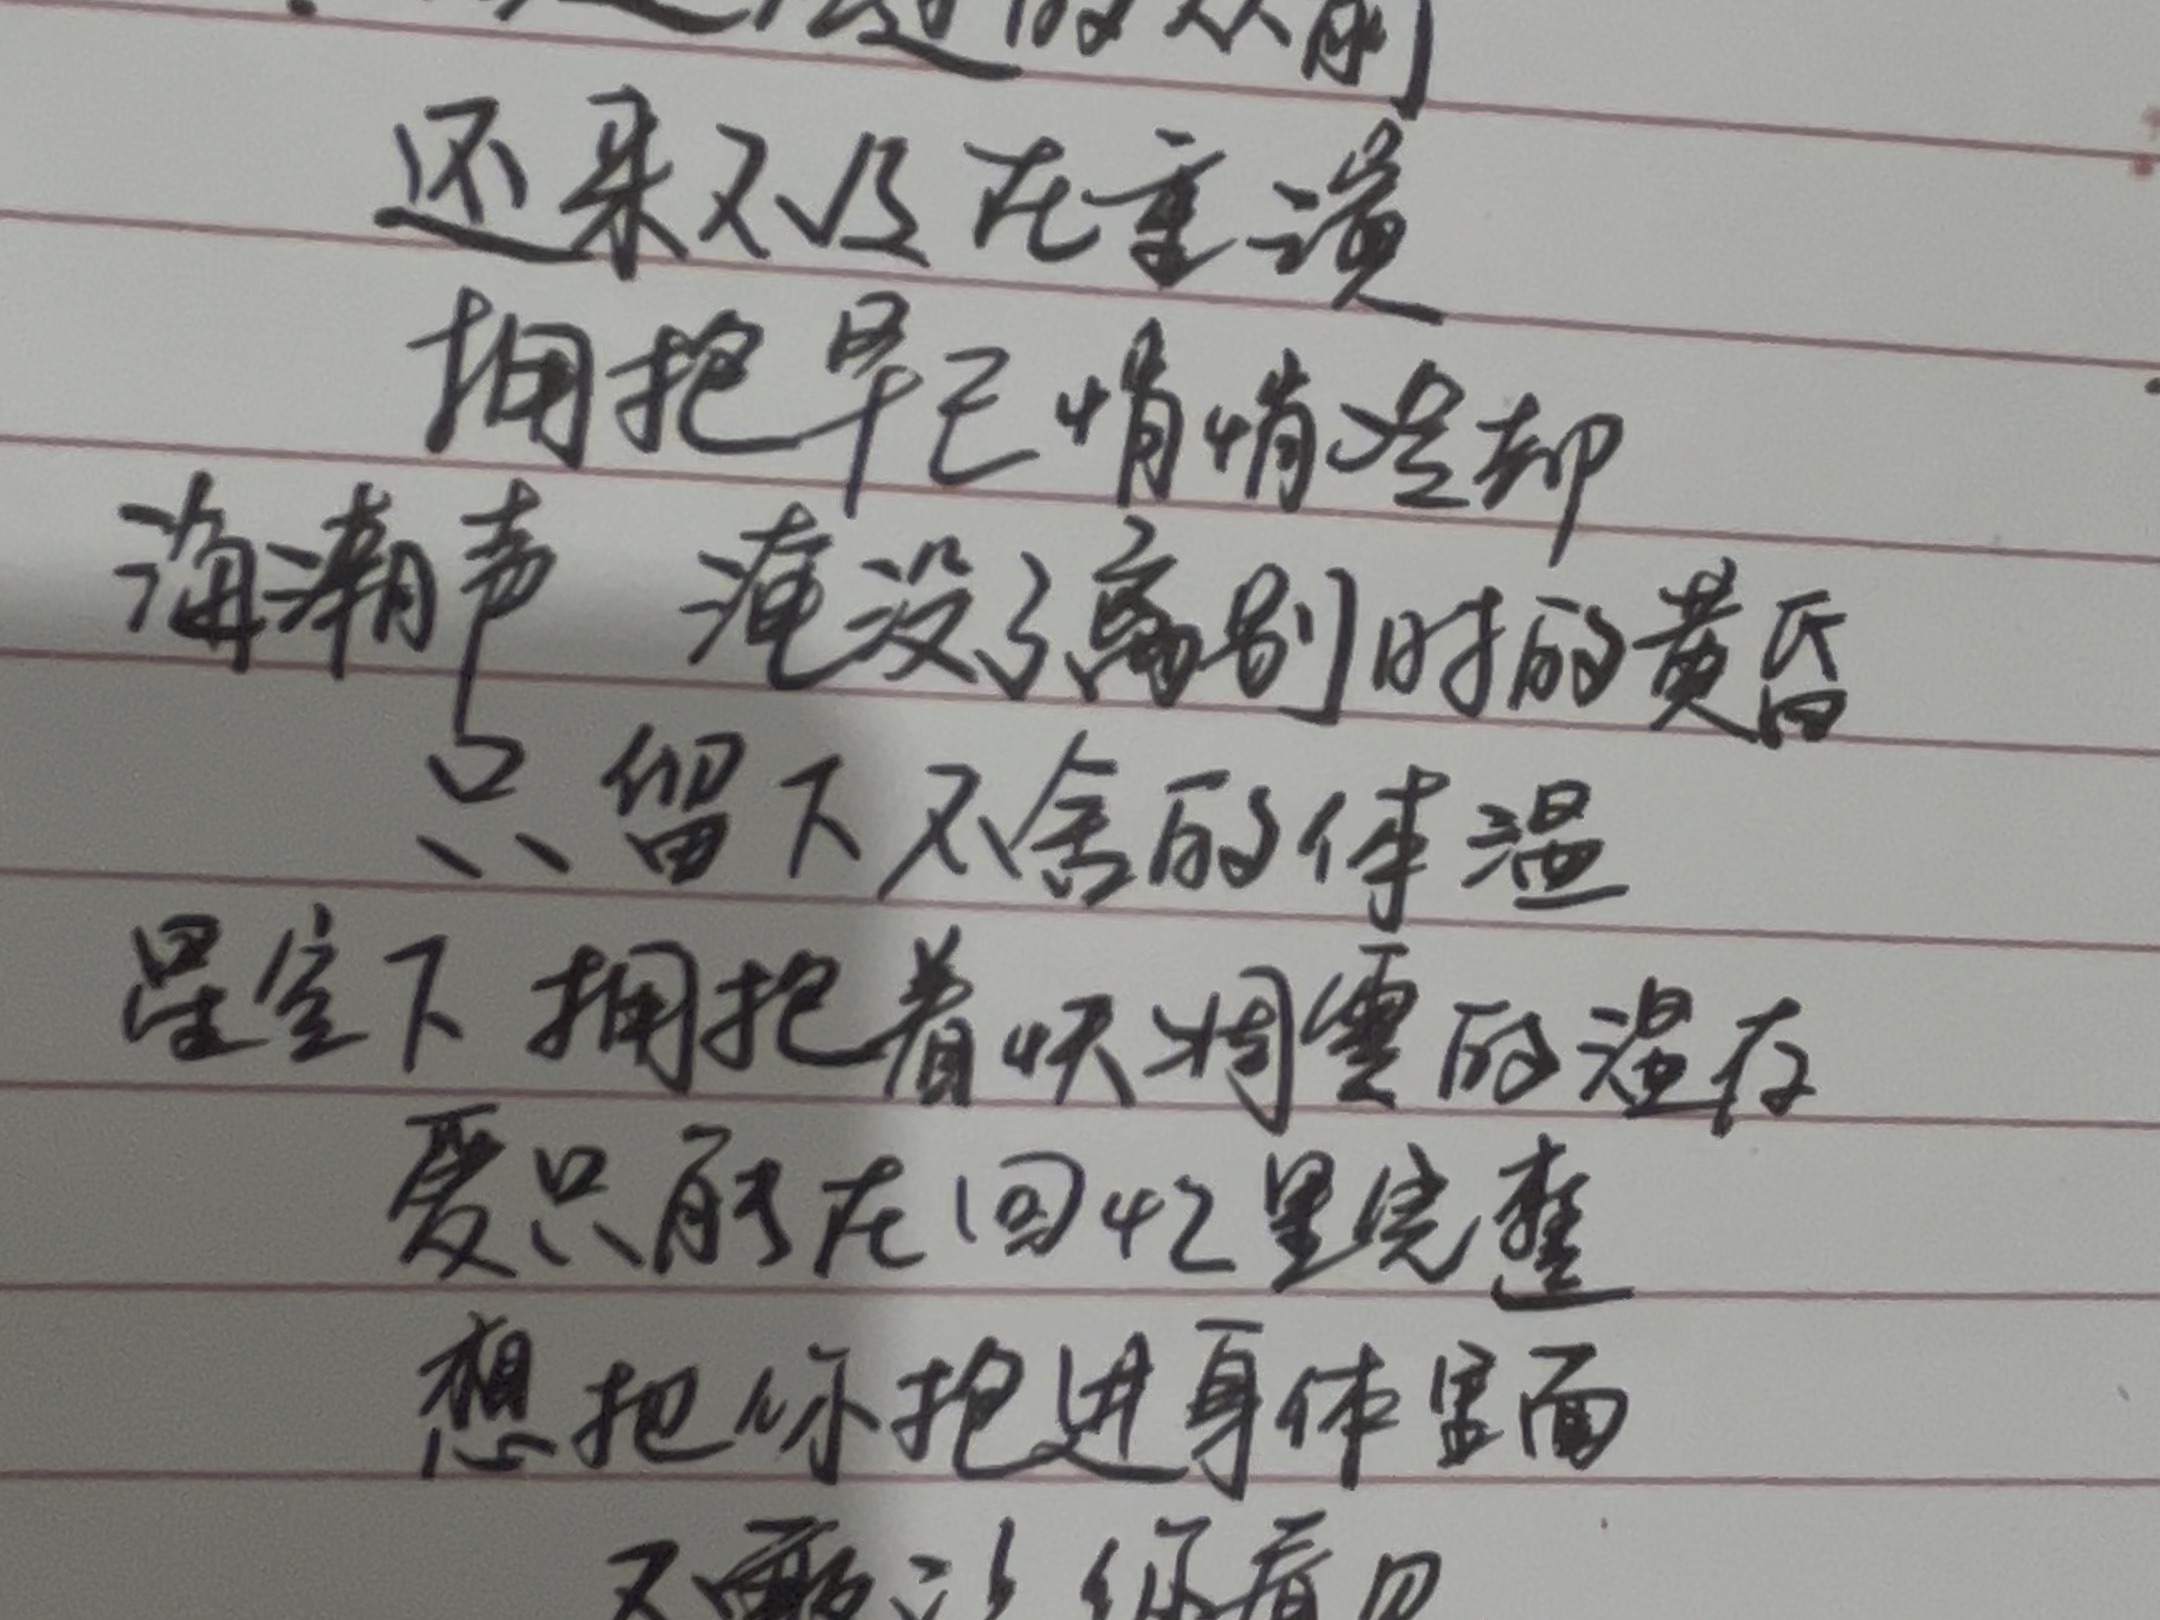 的从前
还来不及在重演
拥抱早已悄悄冷却
海潮声 淹没了离别时的黄昏
只留下不舍的体温
星空下 拥抱着快凋零的温存
爱只能在回忆里完整
想把你抱进身体里面
不敢让你看见